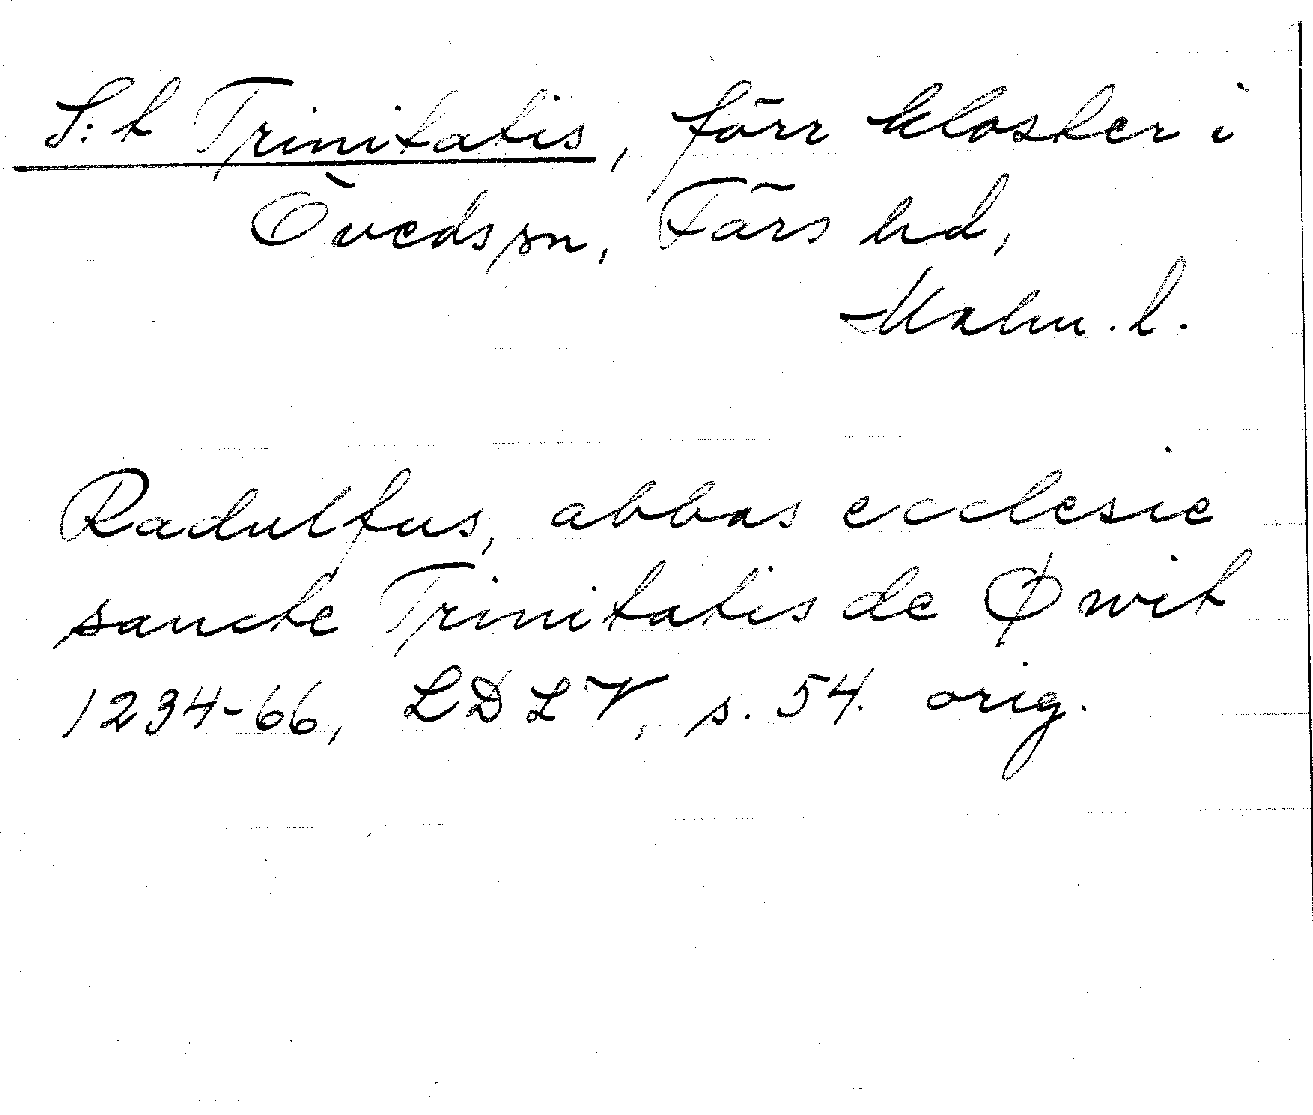 S:t Trinitatis, förr kloster i
Övedsm, Färs hd,
Malm. l.
Radulfus, abbas ecclesie
sancte Trinitatis de Øwit
1234-66, LDLV, s. 54. orig.